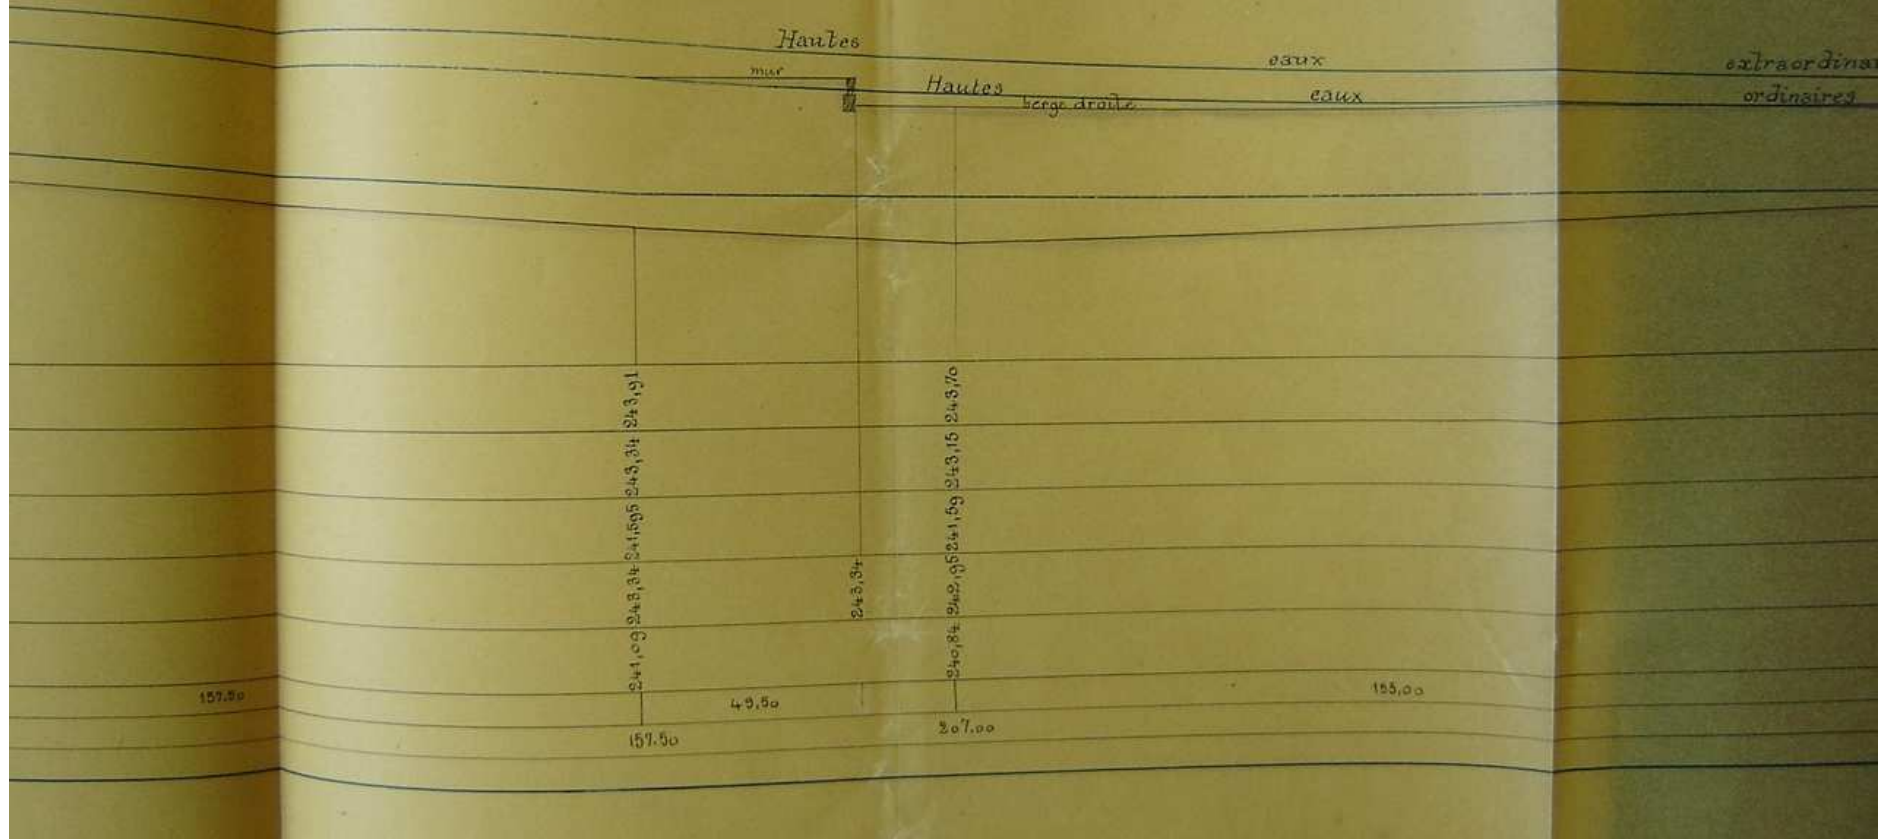 Hautes eaux extraordinai
mur
Hautes eaux ordinaires
berge droite
243,91
243,34
241,595
243,34
241,09
243,34
243,70
243,15
241,59
242,95
240,84
157.50
49,50
155,00
157.50
207.00